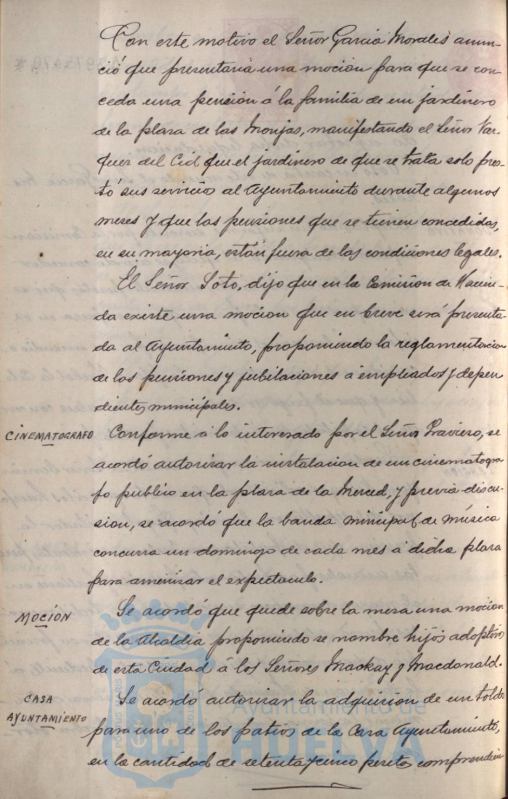 Con este motivo el Señor Garcia Morales anun-
ció que presentaria una moción para que se con-
ceda una pensión á la familia de un jardinero
de la plaza de las Monjas, manifestando el Señor Vaz-
quez del Cid que el jardinero de que se trata solo pres-
tó sus servicios al Ayuntamiento durante algunos
meses y que las pensiones que se tienen concedidas,
en su mayoria, están fuera de las condiciones legales.
El Señor Soto, dijo que en la Comisión de Hacien-
da existe una mocion que en breve será presenta-
da al Ayuntamiento, proponiendo la reglamentacion
de las pensiones y jubilaciones á empleados y depen
dientes municipales.
CINEMATOGRAFO
Conforme á lo interesado por el Señor Traviero, se
acordó autorizar la instalacion de un cinematogra-
fo público en la plaza de la Merced, y previa discu-
sion, se acordó que la banda municipal de música
concurra un domingo de cada mes á dicha plaza
para amenizar el expectaculo.
MOCIÓN
Se acordó que quede sobre la mesa una mocion
de la Alcaldia proponiendo se nombre hijos adoptivos
de esta Ciudad á los Señores Mackay y Macdonald.
CASA
AYUNTAMIENTO
Se acordó autorizar la adquisicion de un toldo
para uno de los patios de la Casa Ayuntamiento,
en la cantidad de setenta y cinco pesetas comprendien
Ayuntamiento de
HUELVA